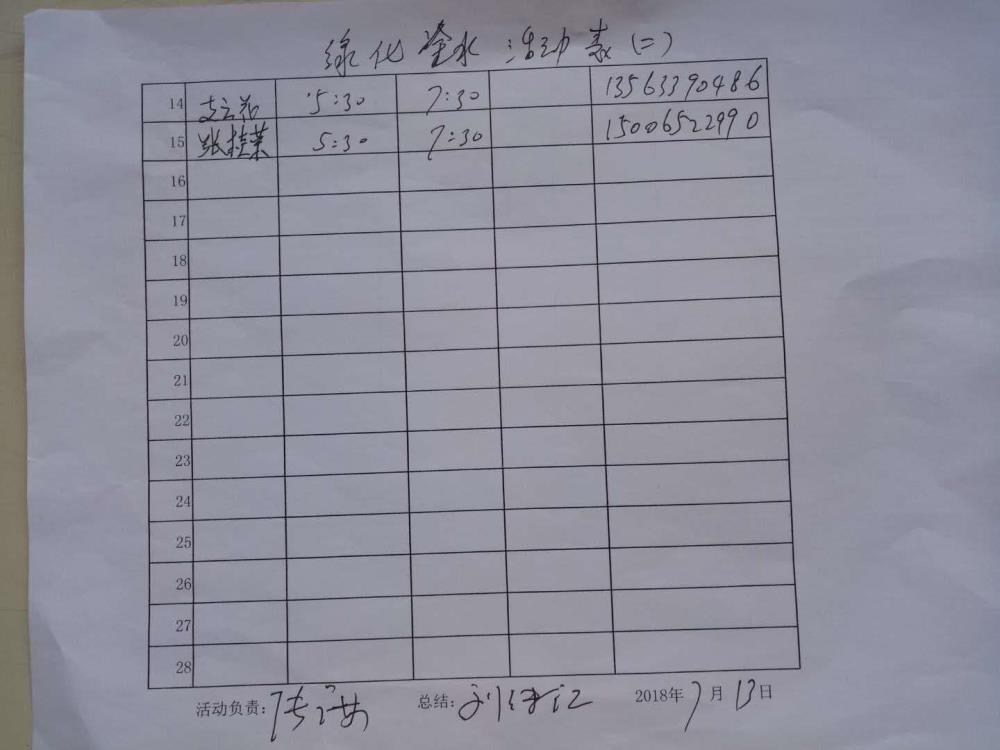 绿化 浇水 活动表(二)
14 支云花 5:30 7:30 13563390486
15 张桂荣 5:30 7:30 15006522990
16
17
18
19
20
21
22
23
24
25
26
27
28
活动负责: 总结: 2018年7月13日